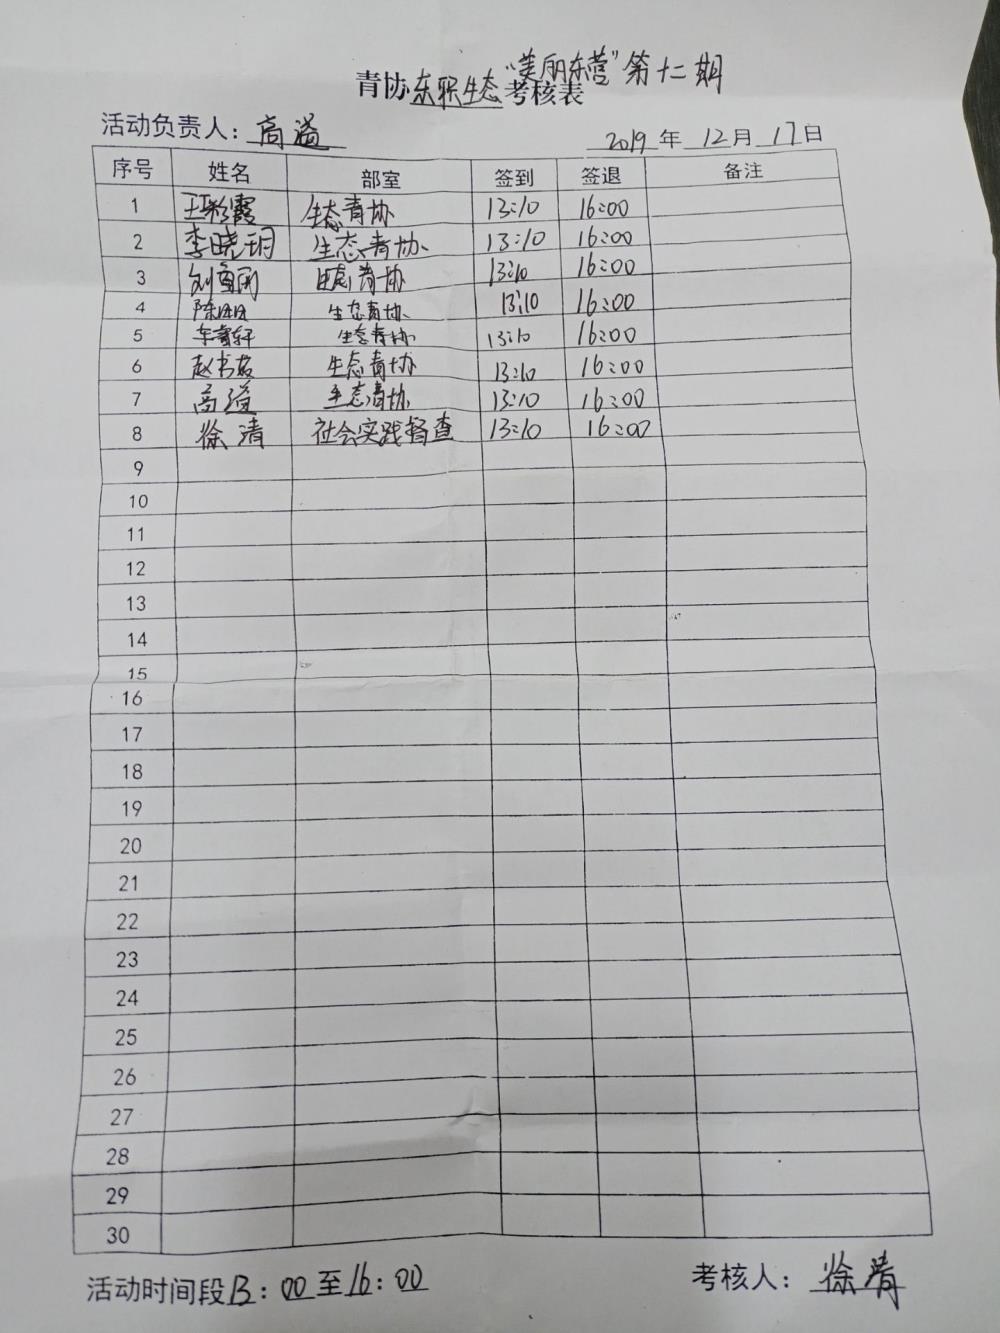 青协东职生态“美丽东营”第十二期考核表
活动负责人：高溢 2019年12月17日
序号 姓名 部室 签到 签退 备注
1 王彩霞 生态青协 13:10 16:00
2 李晓玥 生态青协 13:10 16:00
3 青协 13:10 16:00
4 生态青协 13:10 16:00
5 生态青协 13:10 16:00
6 赵书茹 生态青协 13:10 16:00
7 高溢 生态青协 13:10 16:00
8 徐清 社会实践督查 13:10 16:00
9
10
11
12
13
14
15
16
17
18
19
20
21
22
23
24
25
26
27
28
29
30
活动时间段13：00至16：00 考核人：徐清